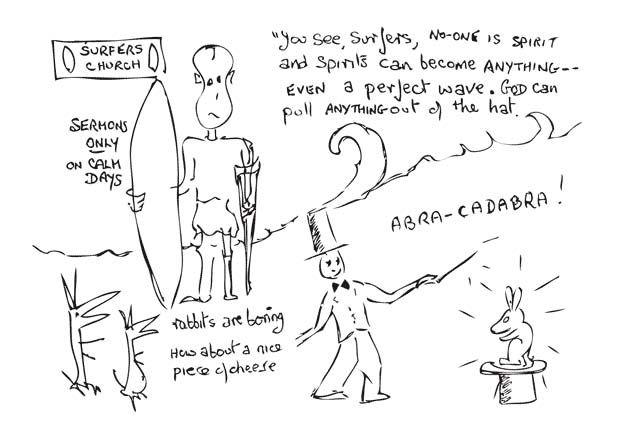 SURFERS
CHURCH
"You see, surfers, NO-ONE IS SPIRIT
and spirits can become ANYTHING--
EVEN a perfect wave. GOD can
pull ANYTHING out of the hat.
SERMONS
ONLY
ON CALM
DAYS
ABRA-CADABRA!
rabbits are boring
HOW about a nice
piece of cheese